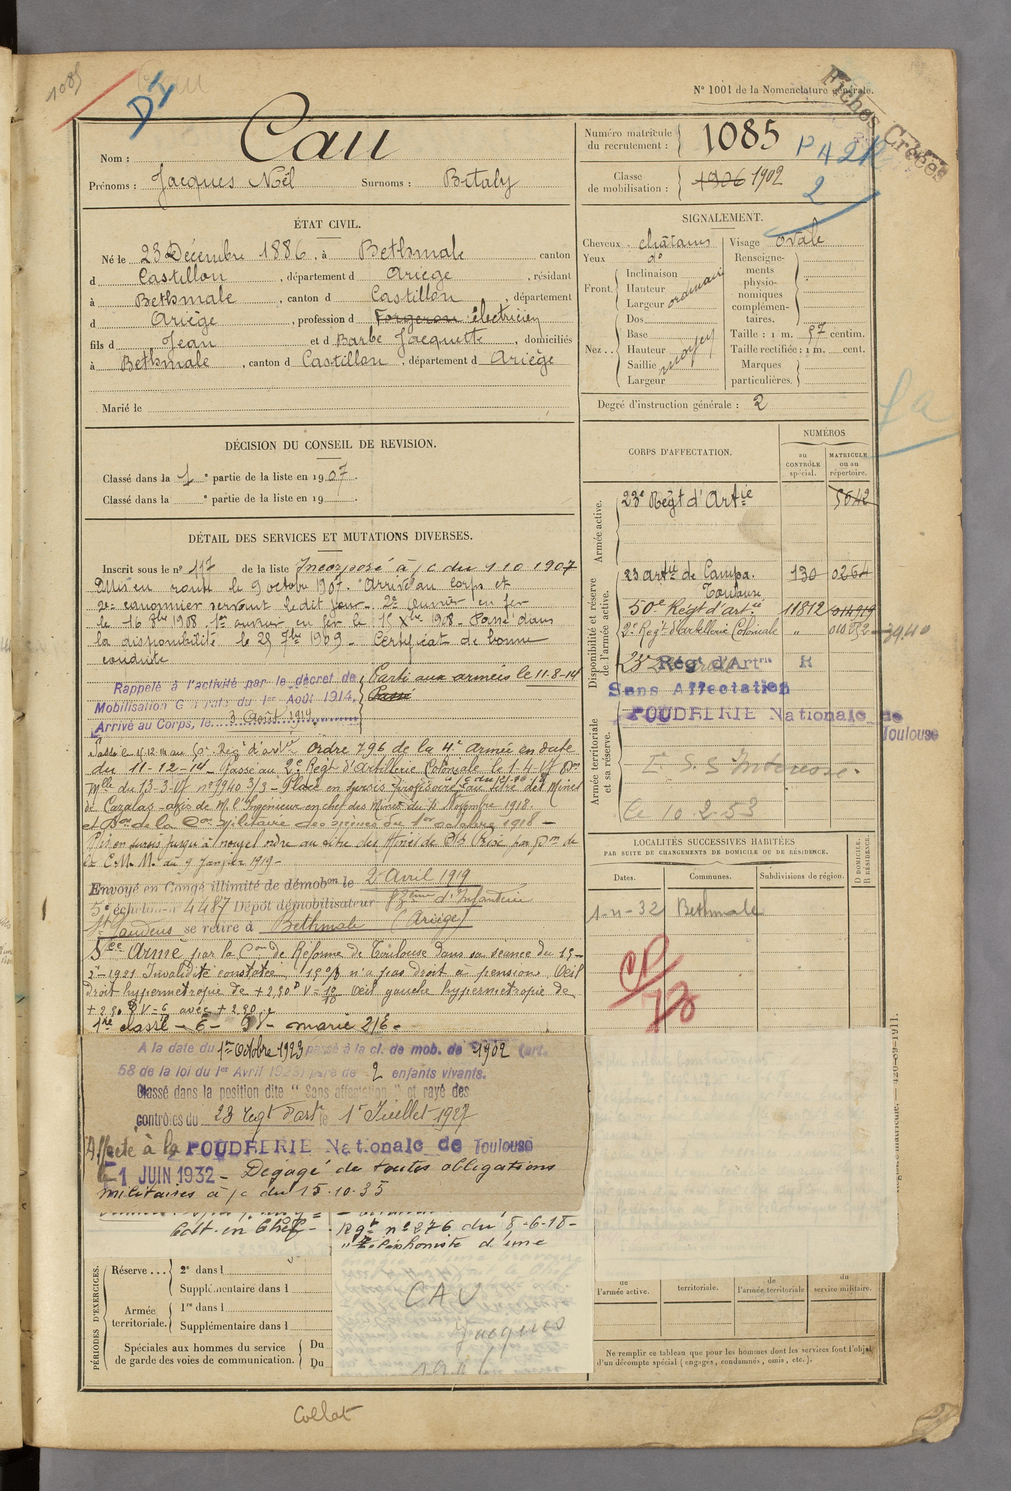 1085
Cau
D4
N° 1001 de la Nomenclature générale.
Fiches Créées
Nom : Cau
Prénoms : Jacques Noël Surnoms : Bitaly
Numéro matricule du recrutement : 1085
P 42R
2
Classe de mobilisation : 1906 1902
ÉTAT CIVIL.
Né le 23 Décembre 1886, à Bethmale canton
d Castillon, département d Ariège, résidant
à Bethmale, canton d Castillon, département
d Ariège, profession d Forgeron électricien
fils d Jean et d Barbe Jacquette, domiciliés
à Bethmale, canton d Castillon, département d Ariège
Marié le
SIGNALEMENT.
Cheveux châtains Visage ovale
Yeux d°
Front. Inclinaison Hauteur Largeur ordinaire
Nez . . Dos Base Hauteur Saillie Largeur moyen
Renseignements physionomiques complémentaires.
Taille : 1 m. 57 centim.
Taille rectifiée : 1 m. cent.
Marques particulières.
Degré d'instruction générale : 2
DÉCISION DU CONSEIL DE REVISION.
Classé dans la 1e partie de la liste en 1907.
Classé dans la e partie de la liste en 19
DÉTAIL DES SERVICES ET MUTATIONS DIVERSES.
Inscrit sous le n° 117 de la liste Incorporé à /c du 1 10 1907
Mis en route le 9 octobre 1907. Arrivé au corps et
2e canonnier servant le dit jour. 2e ouvrier en fer
le 16 1908. 1er ouvrier en fer le 1er Xbre 1908. Passé dans
la disponibilité le 25 7bre 1909. Certificat de bonne
conduite
Rappelé à l'activité par le décret de
Mobilisation Générale du 1er Août 1914.
Arrivé au Corps, le 3 Août 1914
Parti aux armées le 11-8-14
Passé
Passé le 15.12.14 au 50e Régt d'artie ordre 796 de la 4e armée en date
du 11-12-14. Passé au 2e Régt d'Artillerie Coloniale le 1-4-17
Placé en sursis au titre des Mines
de Cazalas avis de M. l'Ingénieur en chef des Mines du 4 Novembre 1918.
militaire des mines du 1er octobre 1918 –
Mis en sursis jusqu'à nouvel ordre au titre des Mines de
E.M.M. du 9 Janvier 1919 –
Envoyé en Congé illimité de démobon le 2 avril 1919
5e échelon n° 4487 Dépôt démobilisateur 83ème d'Infanterie
St Gaudens se retire à Bethmale (Ariège)
Sce Armé par la Con de Réforme de Toulouse dans sa séance du 15-
2-1921 Invalidité constatée 15% n'a pas droit à pension. Oeil
droit hypermétropie de + 2,50 D V = 10/10 Oeil gauche hypermétropie de
+ 2,50 D V = avec + 2,50
1re classe – E – marié 2/E.
A la date du 1er Octobre 1923 passé à la cl. de mob. de 1902 (art.
58 de la loi du 1er Avril 1923) père de 2 enfants vivants.
Classé dans la position dite " Sans affectation " et rayé des
contrôles du 23 Regt d'arte le 1er Juillet 1927
Affecté à la POUDRERIE Nationale de Toulouse
le 1 JUIN 1932 – Dégagé de toutes obligations
militaires à /c du 15.10.35
Régt n° 276 du 8-6-18 –
téléphoniste d'une
CAU
Jacques
1906
CORPS D'AFFECTATION.
NUMÉROS
au CONTRÔLE spécial.
MATRICULE ou au répertoire.
Armée active.
23e Régt d'Artie 5642
Disponibilité et réserve de l'armée active.
23 artie de Campa. Toulouse 130 0264
50e Régt d'artie 11812
2e Régt d'Artillerie Coloniale " 3940
23e Régt d'Artie R
Sans Affectation
POUDRERIE Nationale de Toulouse
Armée territoriale et sa réserve.
E.S.S Intéressé.
le 10.2.53
fa
LOCALITÉS SUCCESSIVES HABITÉES
PAR SUITE DE CHANGEMENTS DE DOMICILE OU DE RÉSIDENCE.
Dates. Communes. Subdivisions de région. D DOMICILE. R RÉSIDENCE.
1-11-32 Bethmale
CP
PÉRIODES D'EXERCICES.
Réserve . . . 2e dans l
Supplémentaire dans l
Armée territoriale. 1re dans l
Supplémentaire dans l
Spéciales aux hommes du service de garde des voies de communication. Du
Du
de l'armée active. territoriale. de l'armée territoriale du service militaire.
Ne remplir ce tableau que pour les hommes dont les services font l'objet
d'un décompte spécial (engagés, condamnés, omis, etc.).
Collat